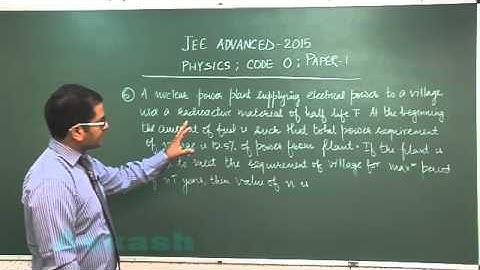 JEE ADVANCED-2015
PHYSICS ; CODE 0 ; PAPER-1
6 A nuclear power plant supplying electrical power to a village
uses a radioactive material of half life T At the beginning
the amount of fuel is such that total power requirement
of village is 12.5% of power from plant. If the plant is
to meet the requirement of village for max^m period
of nT years, then value of n is
Aakash